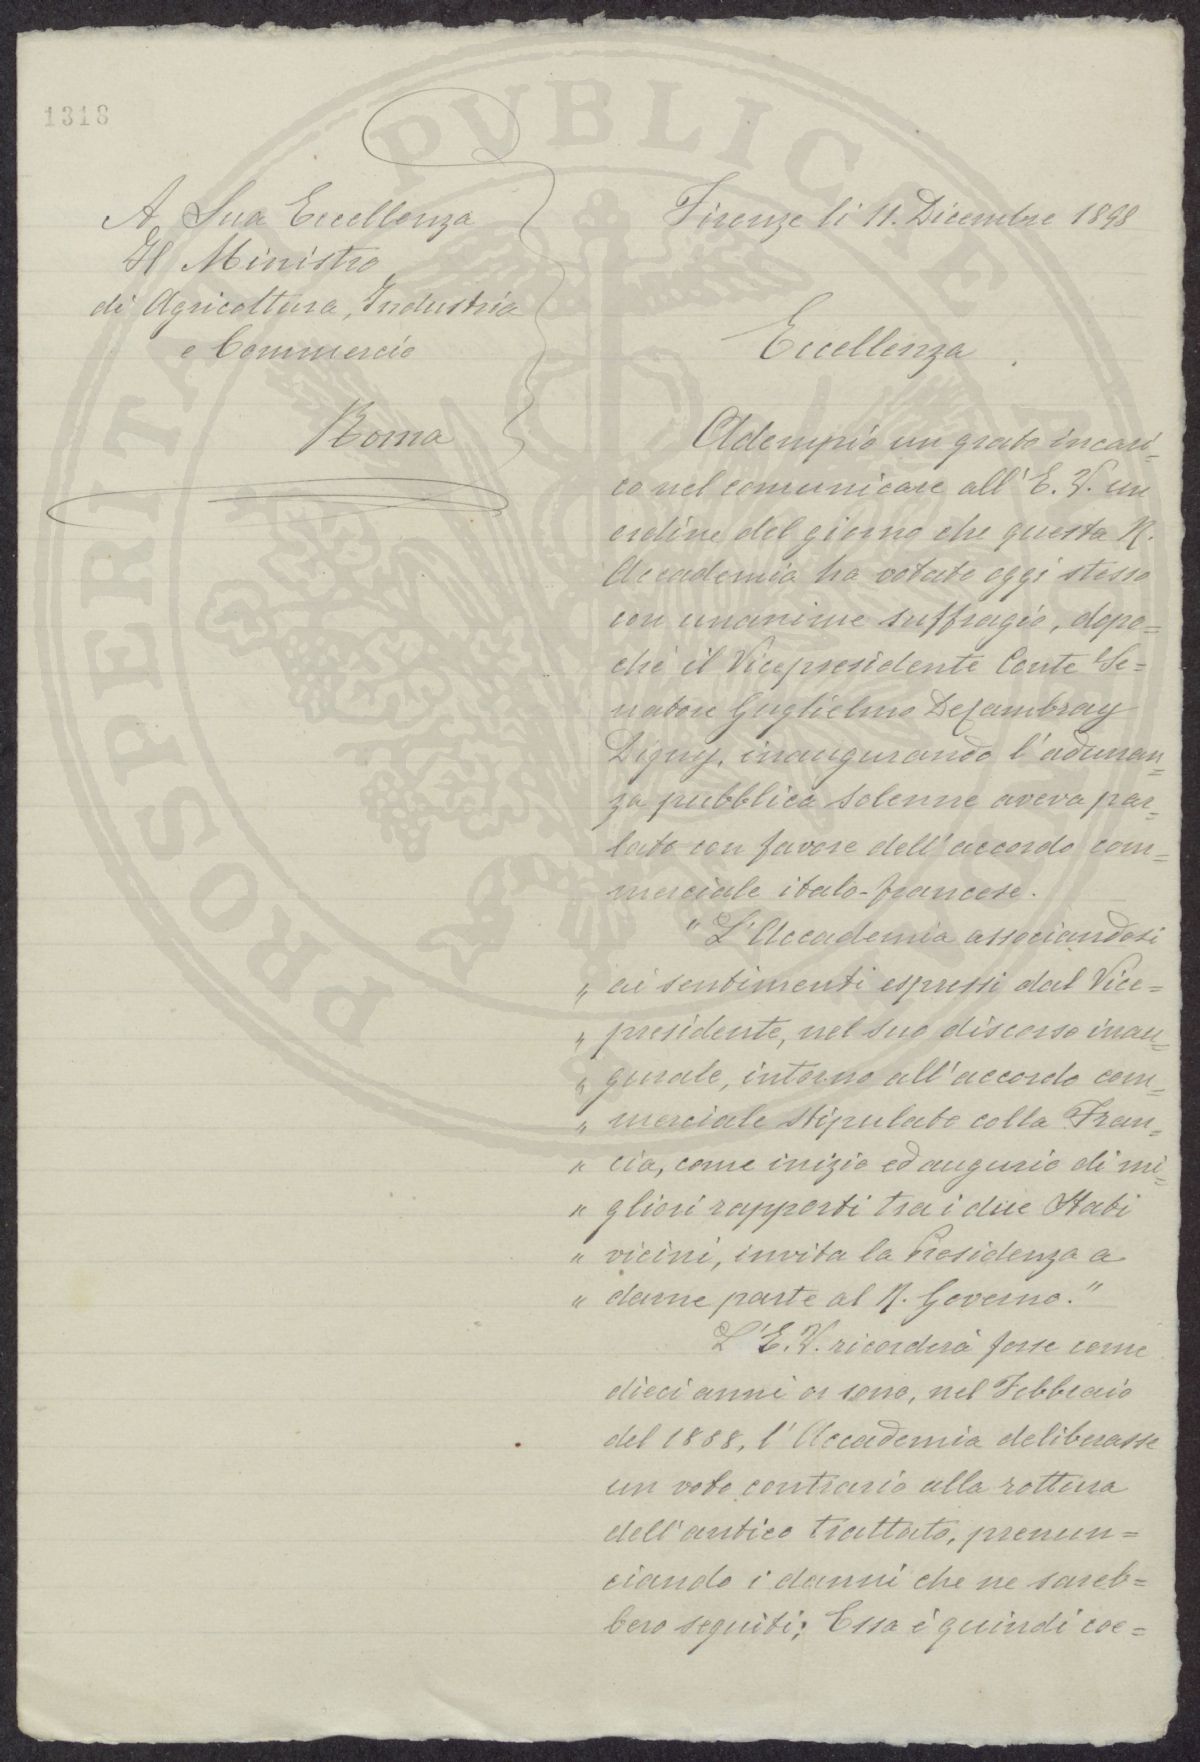 1318
A Sua Eccellenza
Il Ministro
di Agricoltura, Industria
e Commercio
Roma
Firenze li 11. Dicembre 1898
Eccellenza
Adempio un grato incari=
co nel comunicare all'E. V. un
ordine del giorno che questa R.
Accademia ha votato oggi stesso
con unanime suffragio, dopo=
chè il Vicepresidente Conte Se=
natore Guglielmo De Cambray
Digny, inaugurando l'adunan=
za pubblica solenne aveva par=
lato con favore dell'accordo com=
merciale italo-francese.
"L'Accademia associandosi
" ai sentimenti espressi dal Vice=
" presidente, nel suo discorso inau=
" gurale, intorno all'accordo com=
" merciale stipulato colla Fran=
" cia, come inizio ed augurio di mi=
" gliori rapporti tra i due Stati
" vicini, invita la Presidenza a
" darne parte al R. Governo."
L'E. V. ricorderà forse come
dieci anni or sono, nel Febbraio
del 1888, l'Accademia deliberasse
un voto contrario alla rottura
dell'antico trattato, prenun=
ciando i danni che ne sareb=
bero seguiti; Essa è quindi coe=
PROSPERITATI PVBLICAE